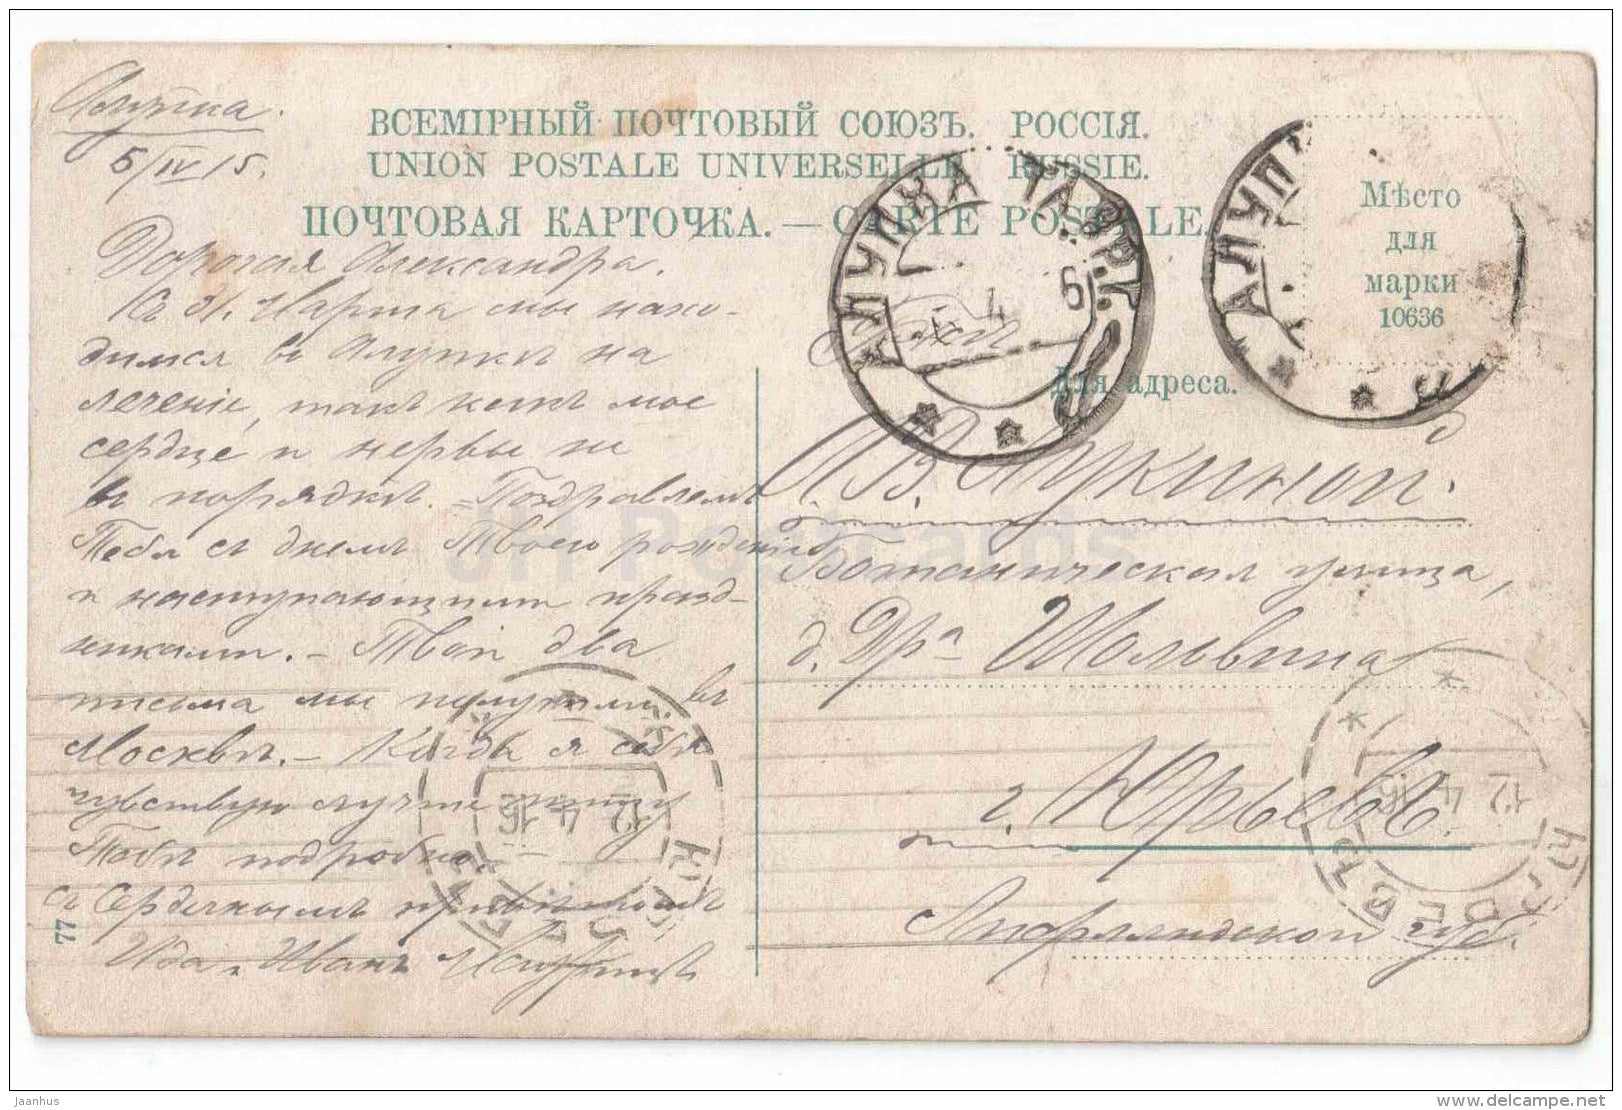 Алупка.
5/IV 15.
ВСЕМІРНЫЙ ПОЧТОВЫЙ СОЮЗЪ. РОССІЯ.
UNION POSTALE UNIVERSELLE RUSSIE.
ПОЧТОВАЯ КАРТОЧКА. — CARTE POSTALE.
Мѣсто
для
марки
10636
АЛУПКА ТАВР.
6 4
АЛУП
Для адреса.
Дорогая Александра.
мы нахо-
димся въ Алупкѣ на
леченіе, такъ какъ мое
сердце и нервы не
въ порядкѣ. – Поздравляемъ
Тебя съ днемъ Твоего рожденія
и наступающими празд-
никами. – Твои два
письма мы получили въ
Москвѣ. – Когда я себя
чувствую лучше напишу
Тебѣ подробно.
Съ сердечнымъ привѣтомъ
Ида и Иванъ
А. В. Лукиной.
Ботаническая улица,
д. Дра Шольвина
г. Юрьевъ.
Лифляндской губ.
ЮРЬЕВЪ
12 4 15
ЮРЬЕВЪ
12 4 15
77
JH Postcards
Jaanhus
delcampe.net